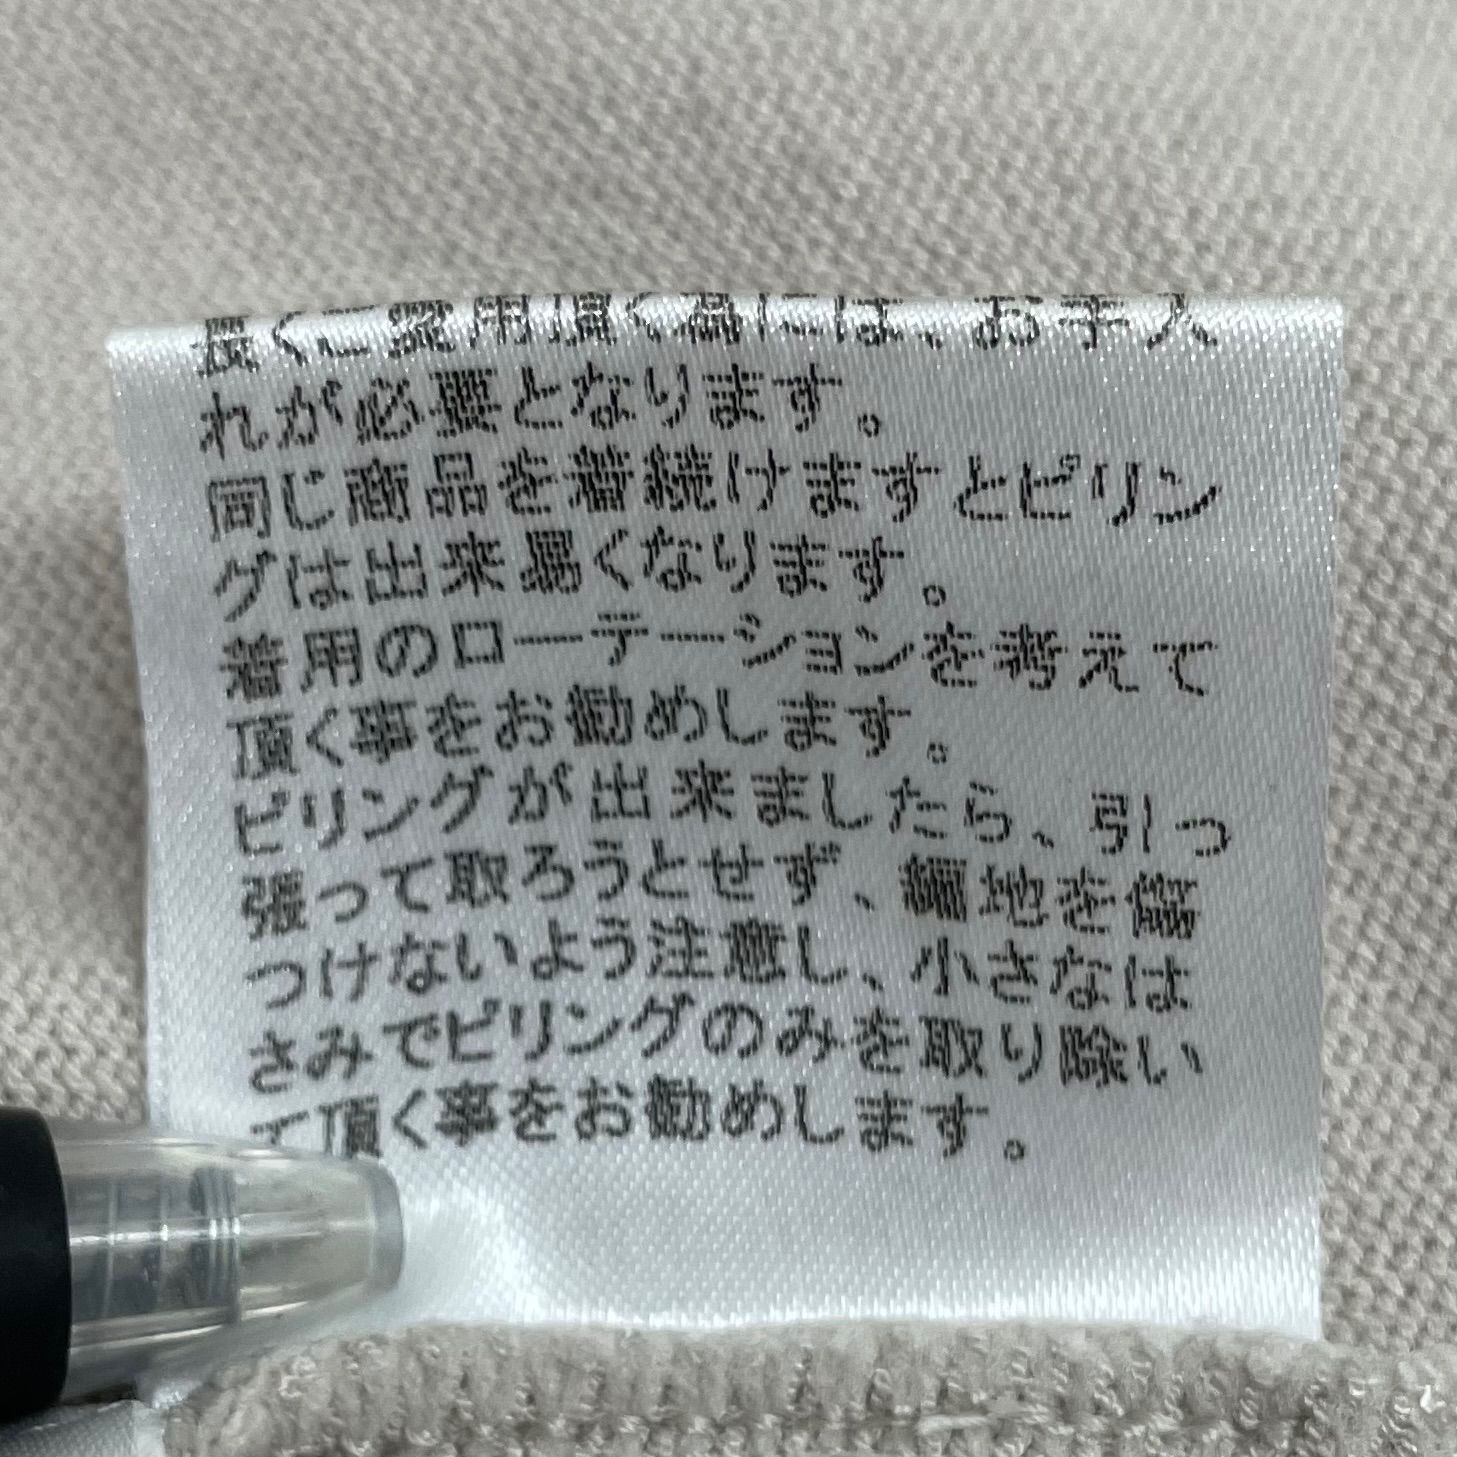 長くご愛用頂く為には、お手入
れが必要となります。
同じ商品を着続けますとピリン
グは出来易くなります。
着用のローテーションを考えて
頂く事をお勧めします。
ピリングが出来ましたら、引っ
張って取ろうとせず、編地を傷
つけないよう注意し、小さなは
さみでピリングのみを取り除い
て頂く事をお勧めします。